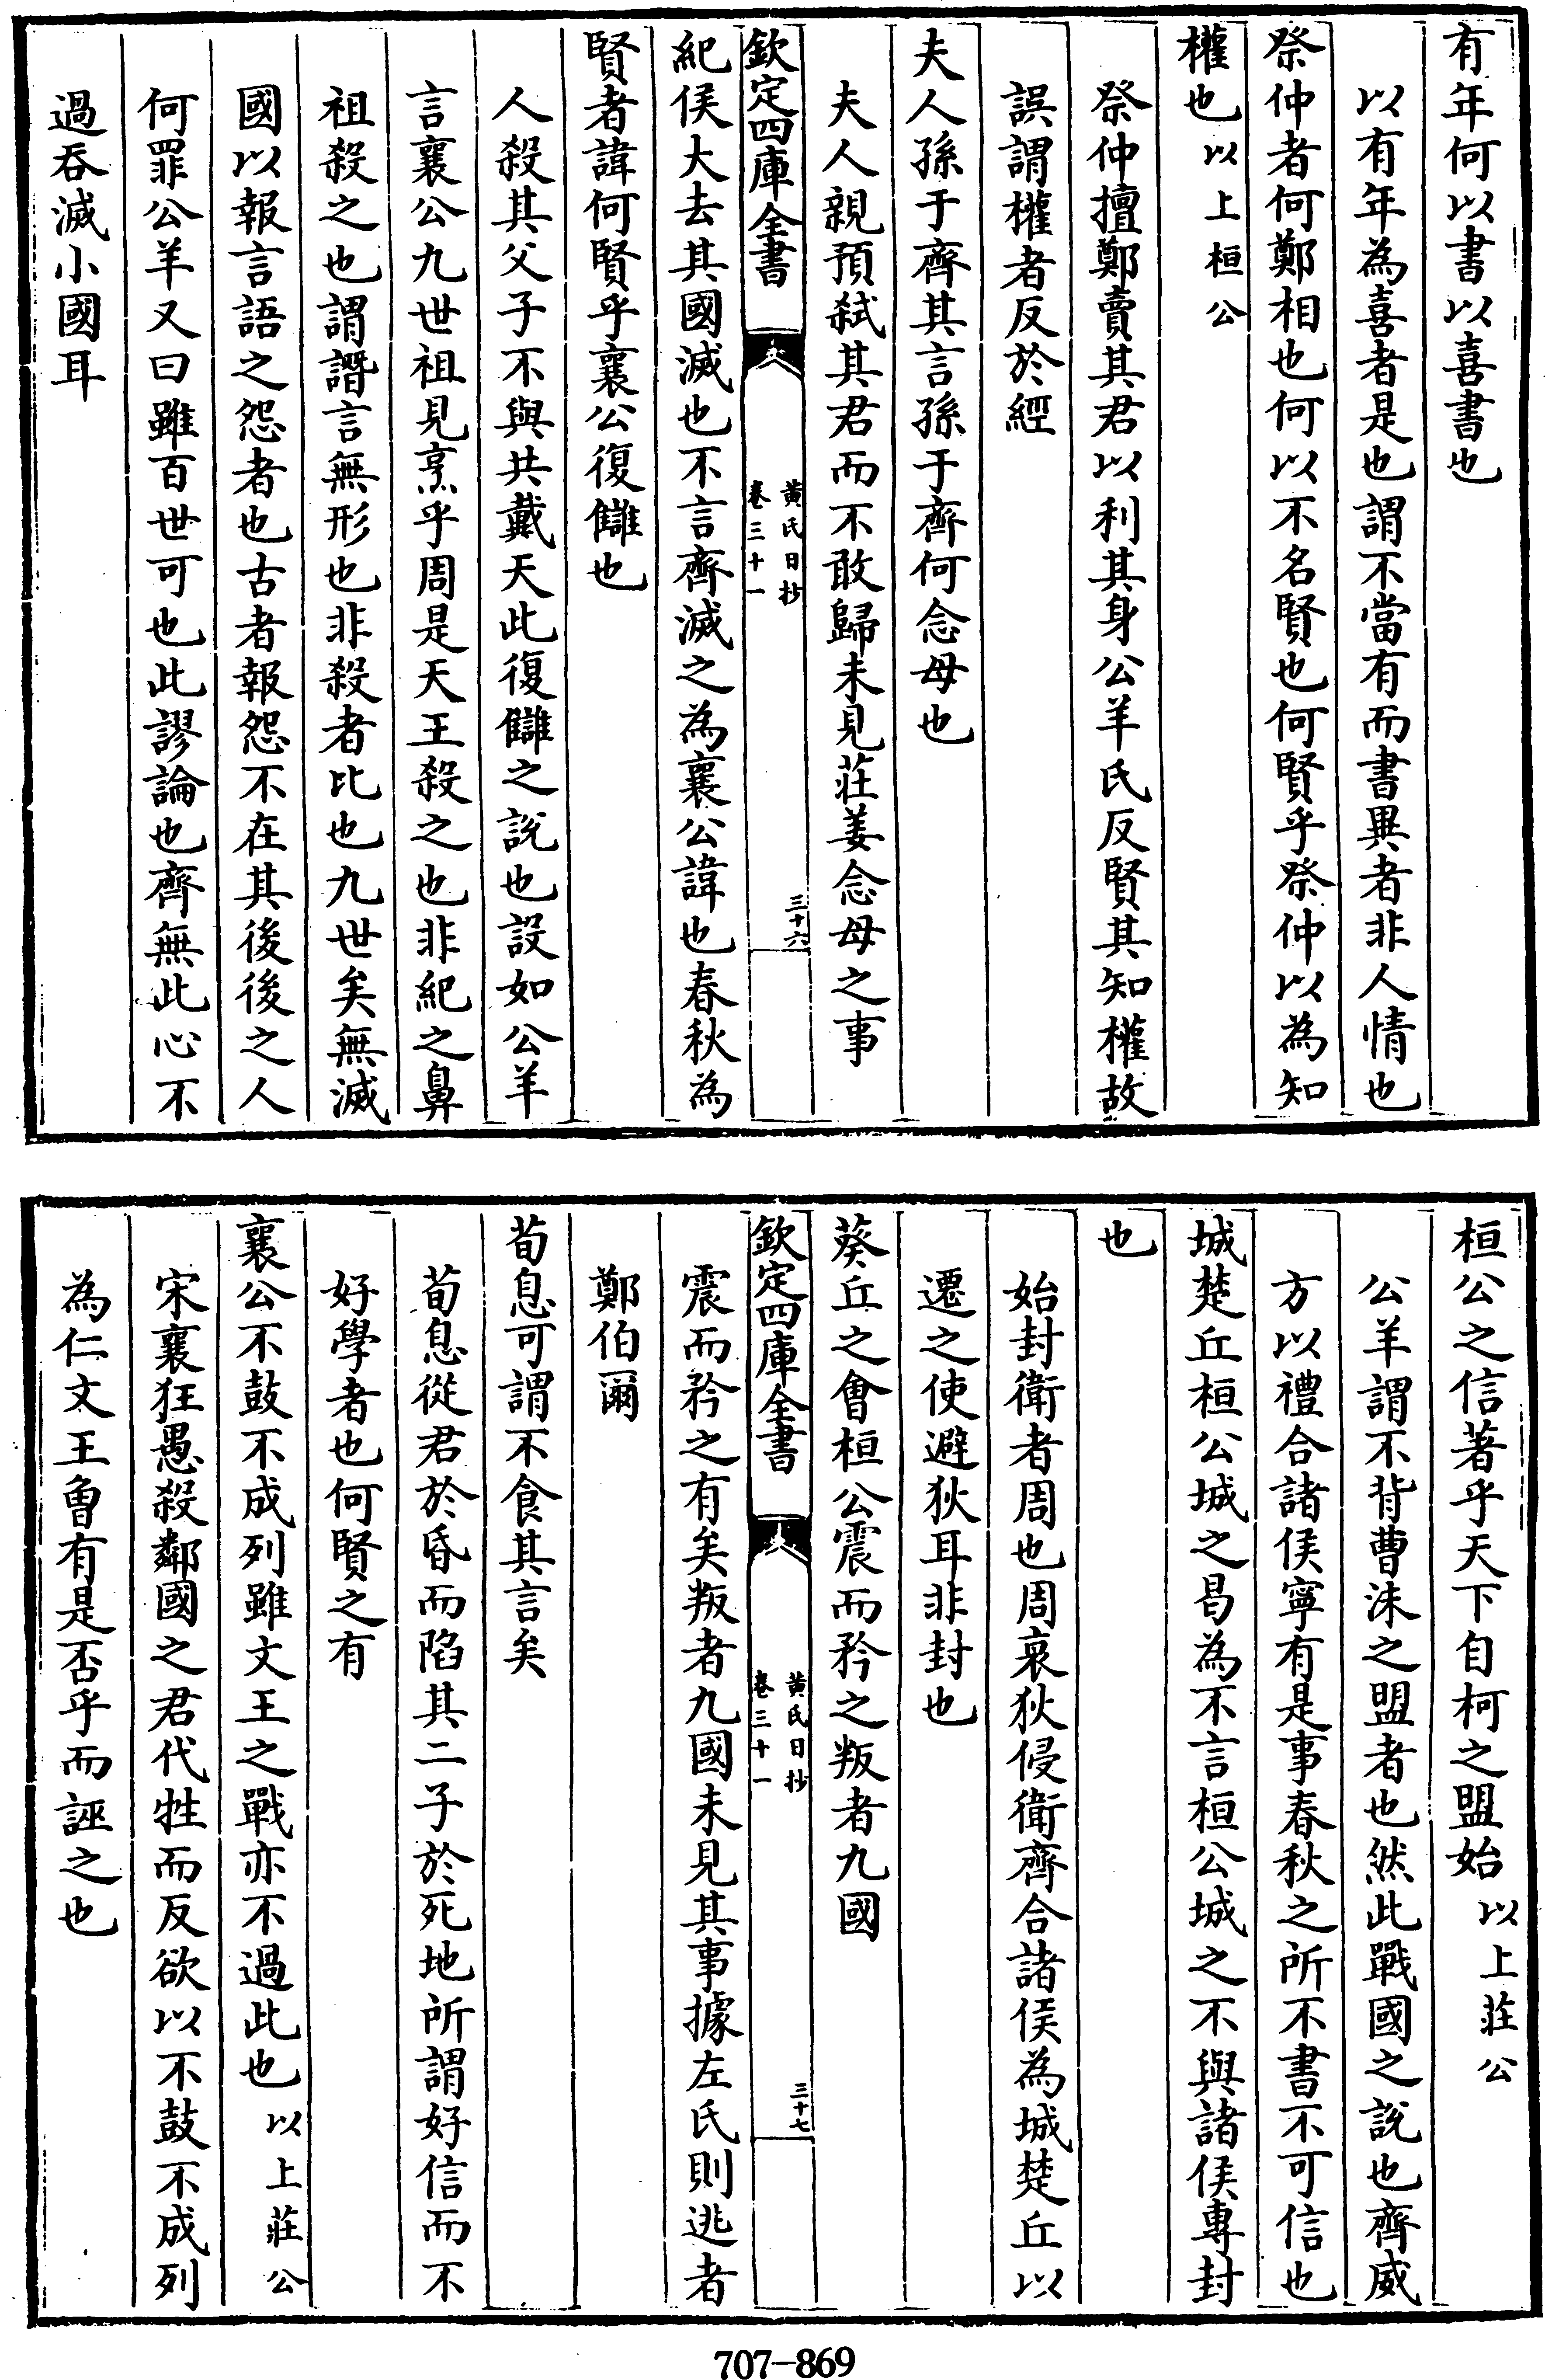 有年何以書以喜書也
以有年為喜者是也謂不當有而書異者非人情也
祭仲者何鄭相也何以不名賢也何賢乎祭仲以為知
權也以上桓公
祭仲擅鄭賣其君以利其身公羊氏反賢其知權故
誤謂權者反於經
夫人孫于齊其言孫于齊何念母也
夫人親預弒其君而不敢歸未見莊姜念母之事
欽定四庫全書
黃氏日抄
卷三十一
三十六
紀侯大去其國滅也不言齊滅之為襄公諱也春秋為
賢者諱何賢乎襄公復讎也
人殺其父子不與共戴天此復讎之說也設如公羊
言襄公九世祖見烹乎周是天王殺之也非紀之鼻
祖殺之也謂譖言無形也非殺者比也九世矣無滅
國以報言語之怨者也古者報怨不在其後後之人
何罪公羊又曰雖百世可也此謬論也齊無此心不
過吞滅小國耳
桓公之信著乎天下自柯之盟始以上莊公
公羊謂不背曹沬之盟者也然此戰國之說也齊威
方以禮合諸侯寧有是事春秋之所不書不可信也
城楚丘桓公城之曷為不言桓公城之不與諸侯專封
也
始封衛者周也周衰狄侵衛齊合諸侯為城楚丘以
遷之使避狄耳非封也
葵丘之會桓公震而矜之叛者九國
欽定四庫全書
黃氏日抄
卷三十一
三十七
震而矜之有矣叛者九國未見其事據左氏則逃者
鄭伯爾
荀息可謂不食其言矣
荀息從君於昏而陷其二子於死地所謂好信而不
好學者也何賢之有
襄公不鼓不成列雖文王之戰亦不過此也以上莊公
宋襄狂愚殺鄰國之君代牲而反欲以不鼓不成列
為仁文王曾有是否乎而誣之也
707-869